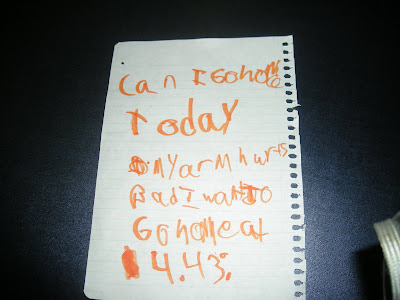 Can I Go home
Today
my arm hurts
Bad I want To
Go home at
4.43.